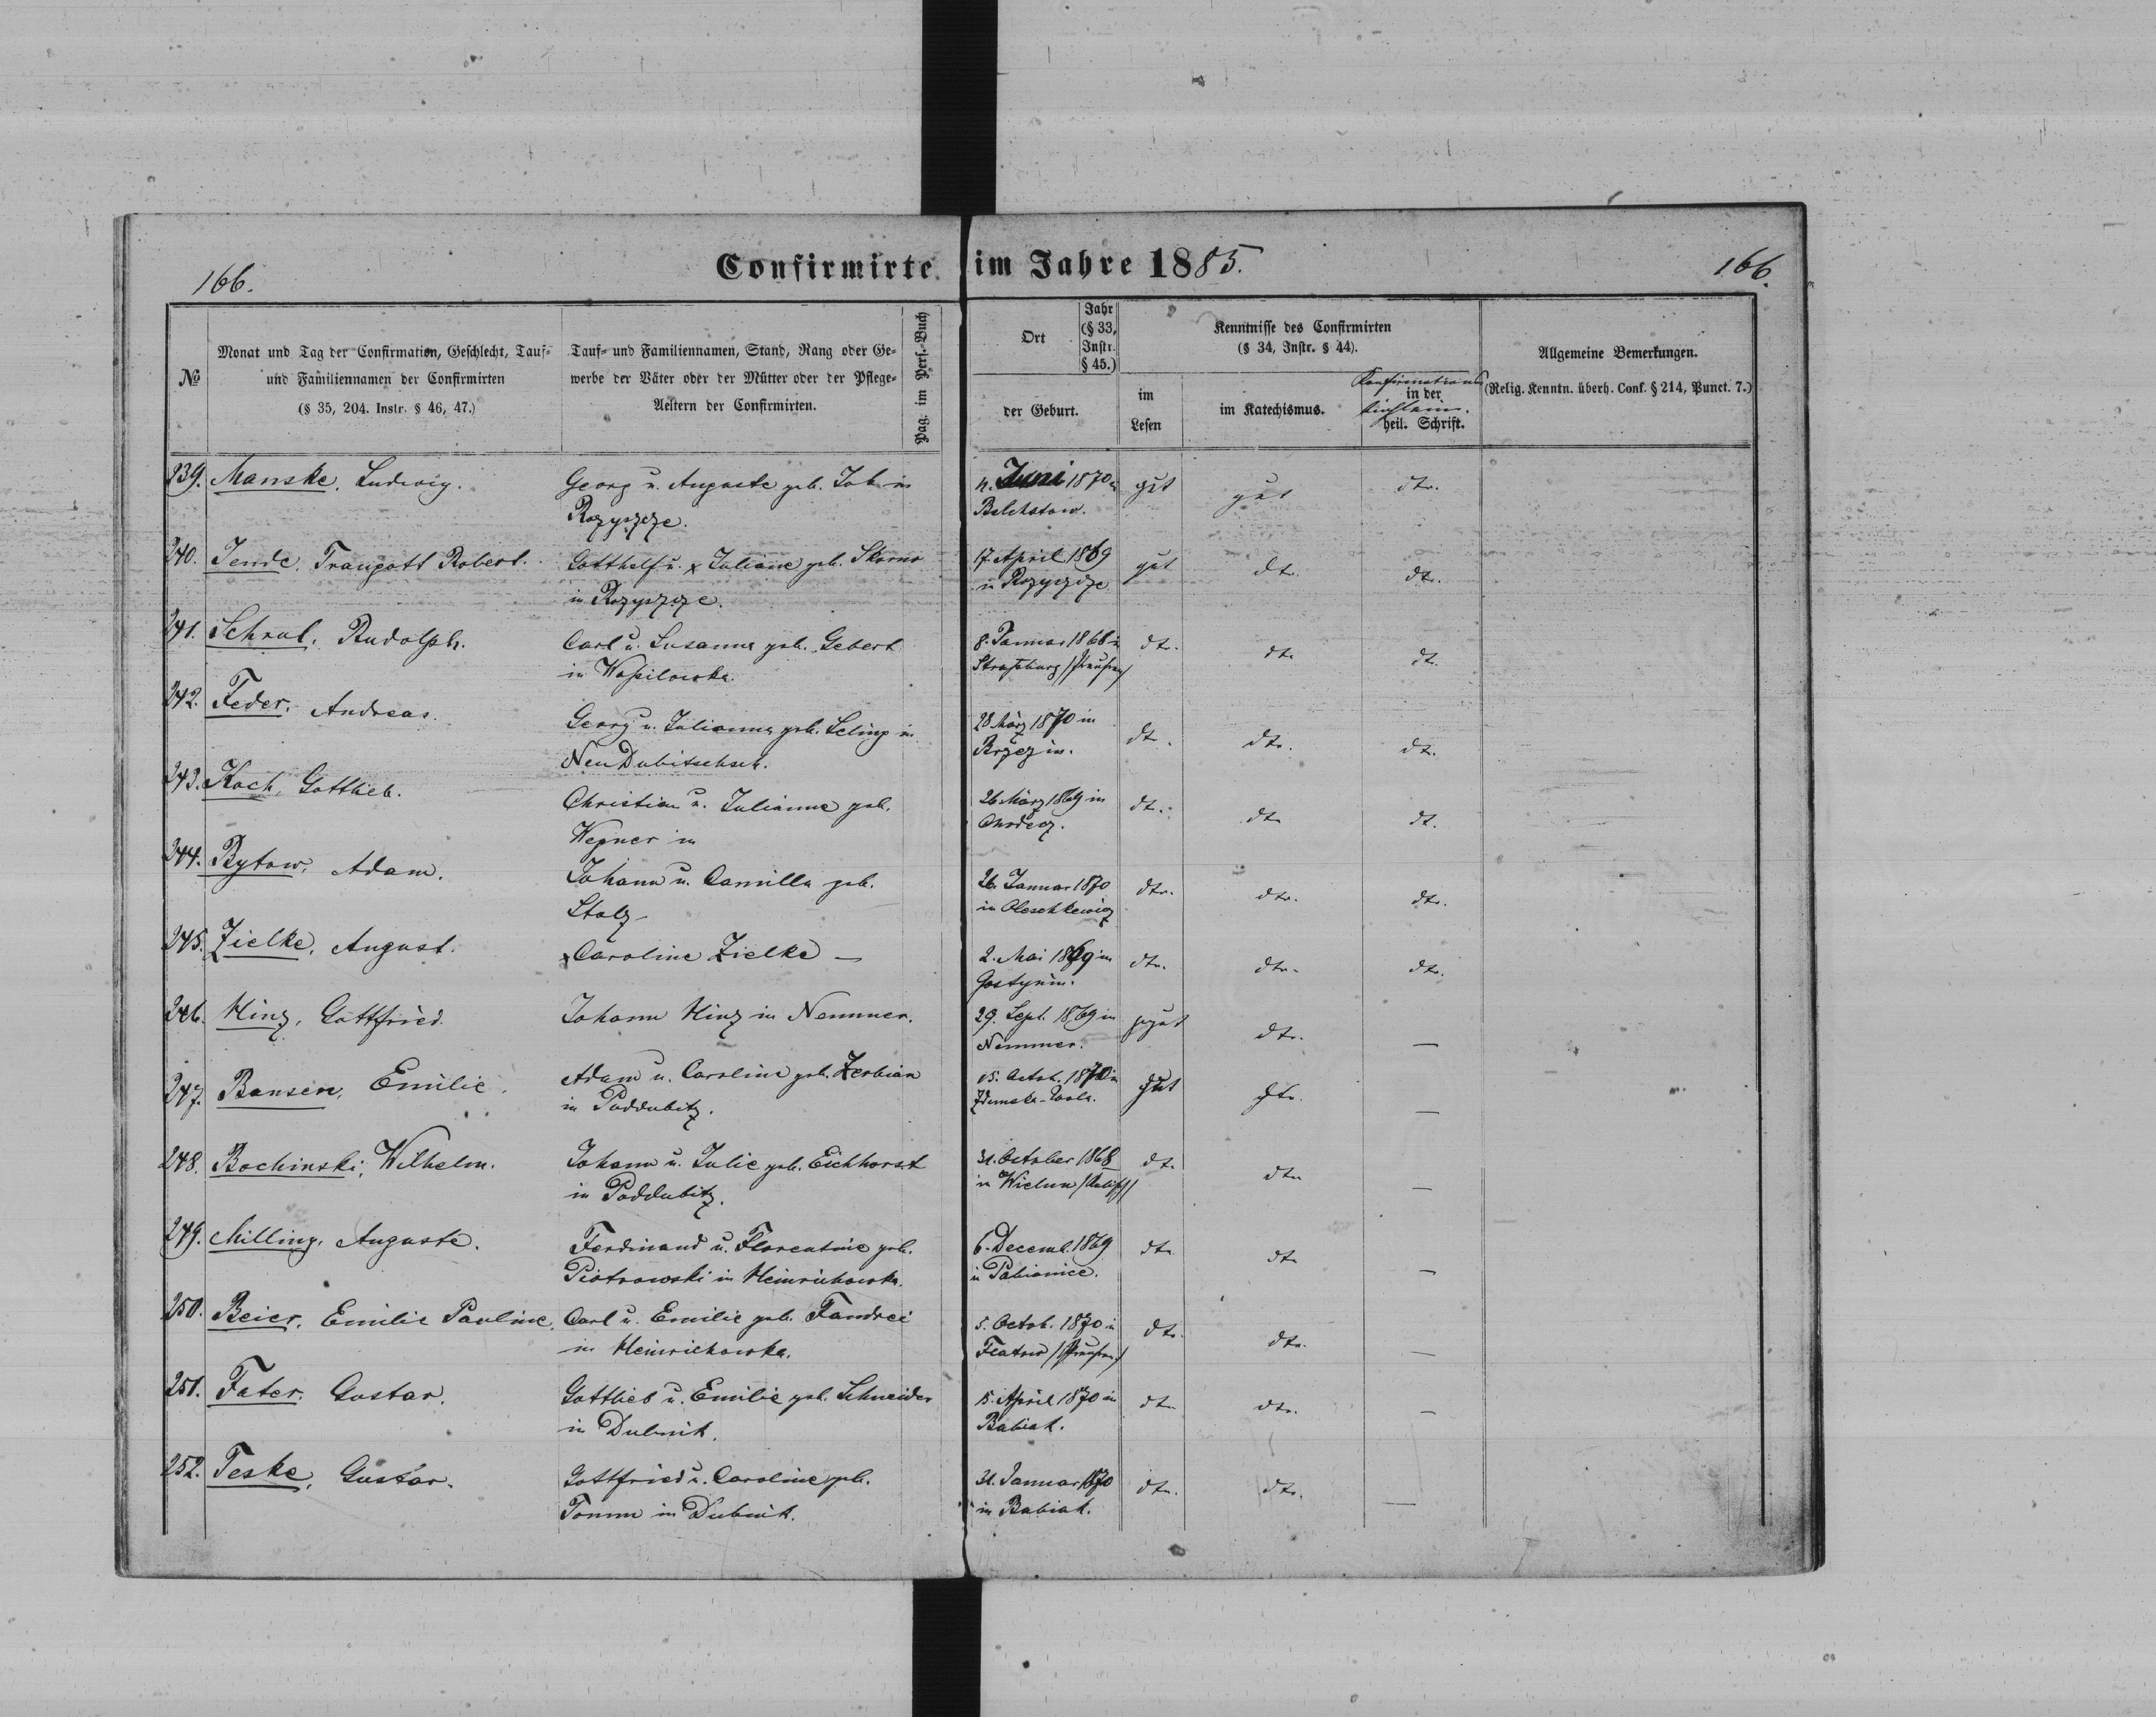 166.
Confirmirte im Jahre 1885.
166.
№
Monat und Tag der Confirmation, Geschlecht, Tauf-
und Familiennamen der Confirmirten
(§ 35, 204. Instr. § 46, 47.)
Tauf- und Familiennamen, Stand, Rang oder Ge-
werbe der Väter oder der Mütter oder der Pflege-
Aeltern der Confirmirten.
Pag. im Pers.-Buch
Ort
Jahr
(§ 33,
Instr.
§ 45.)
der Geburt.
Kenntnisse des Confirmirten
(§ 34, Instr. § 44).
im
Lesen
im Katechismus.
Konfirmations
in der
büchlein.
heil. Schrift.
Allgemeine Bemerkungen.
(Relig. Kenntn. überh. Conf. § 214, Punct. 7.)
239. Manske, Ludwig. Georg u. Auguste geb. Job in 4. Juni 1870 in gut gut dto.
Rozyszcze. Belchatow.
240. Jende, Traugott Robert. Gotthelf u. x Juliane geb. Skorno 17. April 1869 gut dto. dto.
in Rozyszcze. in Rozyszcze.
241. Schral, Rudolph. Carl u. Susanna geb. Gebert 8. Januar 1868 in dto. dto. dto.
in Waßilowka. Straßburg /Preußen/
242. Feder, Andreas. Georg u. Julianna geb. Seling in 28 März 1870 in dto. dto. dto.
Neu Dubitschsch. Brzezin.
243. Koch, Gottlieb. Christian u. Julianne geb. 26 März 1869 in dto. dto. dto.
Wegner in Chodecz.
244. Bytow, Adam. Johann u. Camilla geb. 26. Januar 1870 dto. dto. dto.
Stolz in Oleschkewicz
245. Zielke, August. x Caroline Zielke — 2. Mai 1869 in dto. dto. dto.
Gostynin.
246. Hinz, Gottfried. Johann Hinz in Nemmer. 29. Sept. 1869 in gut dto. —
Nemmer.
247. Bansen, Emilie. Adam u. Caroline geb. Zerbian 15. Octob. 1870 in gut dto. —
in Poddubitz. Zdunska-Wola.
248. Bochinski, Wilhelm. Johann u. Julie geb. Eichhorst 31. October 1868 dto. dto. —
in Poddubitz. in Wielun /Kalisch/
249. Milling, Auguste. Ferdinand u. Florentine geb. 6. Decemb. 1869 dto. dto. —
Piotrowski in Heinrichowka. in Pabianice.
250. Beier, Emilie Pauline. Carl u. Emilie geb. Fandrei 5. Octob. 1870 in dto. dto. —
in Heinrichowka. Flatow /Preußen/
251. Fater, Gustav. Gottlieb u. Emilie geb. Schneider 15. April 1870 in dto. dto. —
in Dubnik. Babiak.
252. Teske, Gustav. Gottfried u. Caroline geb. 31. Januar 1870 dto. dto. —
Tomm in Dubnik. in Babiak.